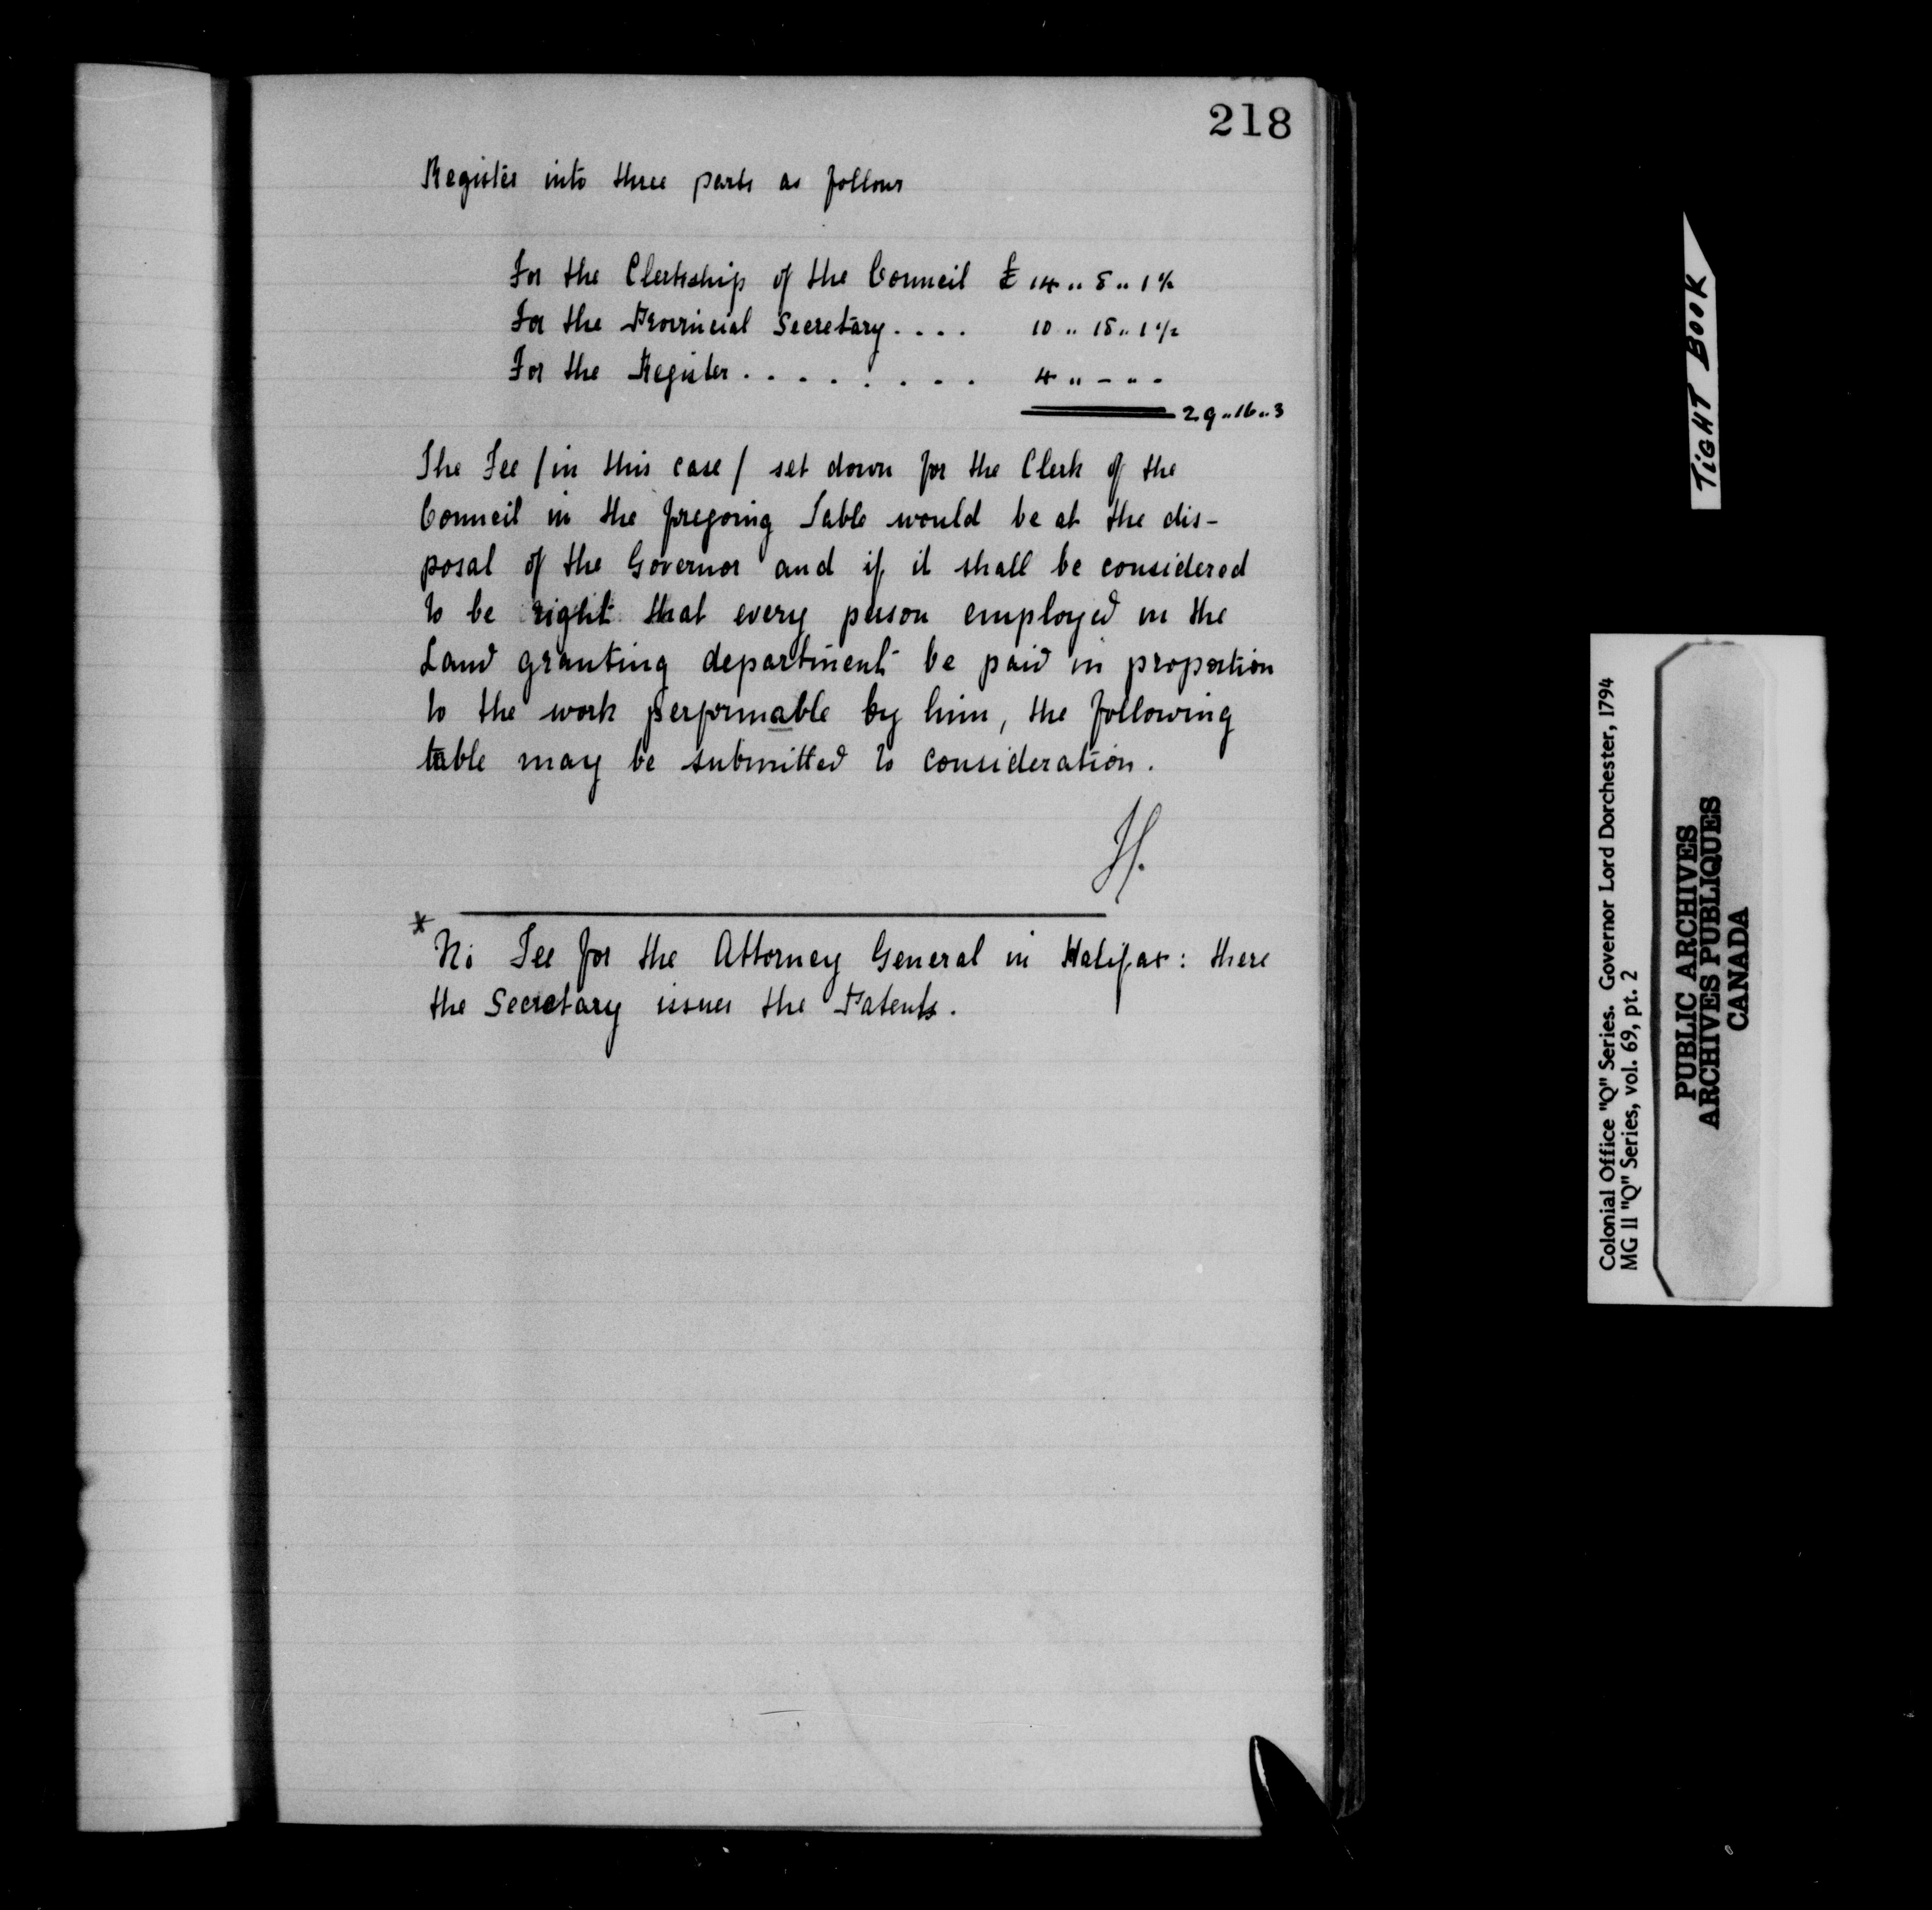 218
Register into three parts as follows
For the Clerkship of the Council £ 14 „ 8 „ 1½
For the Provincial Secretary .... 10 „ 18 „ 1½
For the Register ......... 4 „ - „ -
29 „ 16 „ 3
The Fee / in this case / set down for the Clerk of the
Council in the foregoing Table would be at the dis-
posal of the Governor and if it shall be considered
to be right that every person employed in the
Land granting department be paid in proportion
to the work performable by him, the following
table may be submitted to consideration.
H.
* No Fee for the Attorney General in Halifax: there
the Secretary issues the Patents.
TIGHT BOOK
Colonial Office "Q" Series. Governor Lord Dorchester, 1794
MG 11 "Q" Series, vol. 69, pt. 2
PUBLIC ARCHIVES
ARCHIVES PUBLIQUES
CANADA